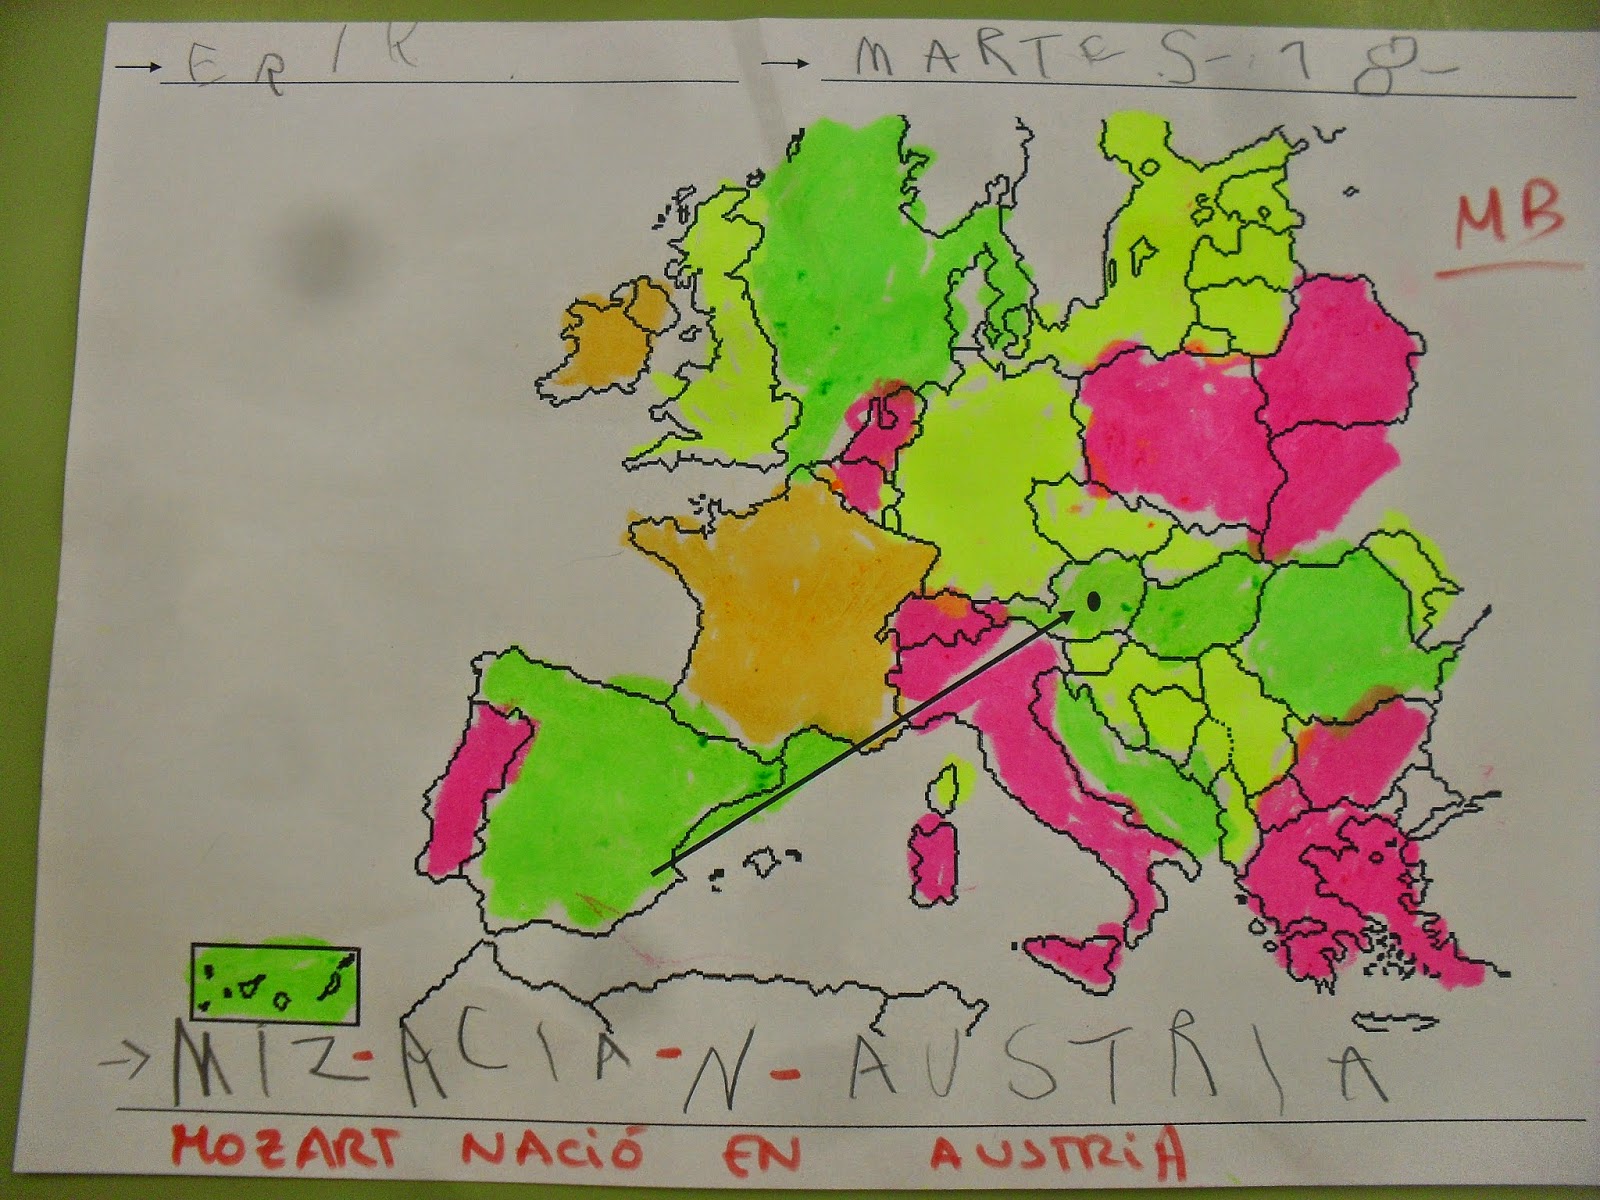 → ERIK → MARTES-18-
MB
→ MIZ-ACIA-N-AUSTRIA
MOZART NACIÓ EN AUSTRIA